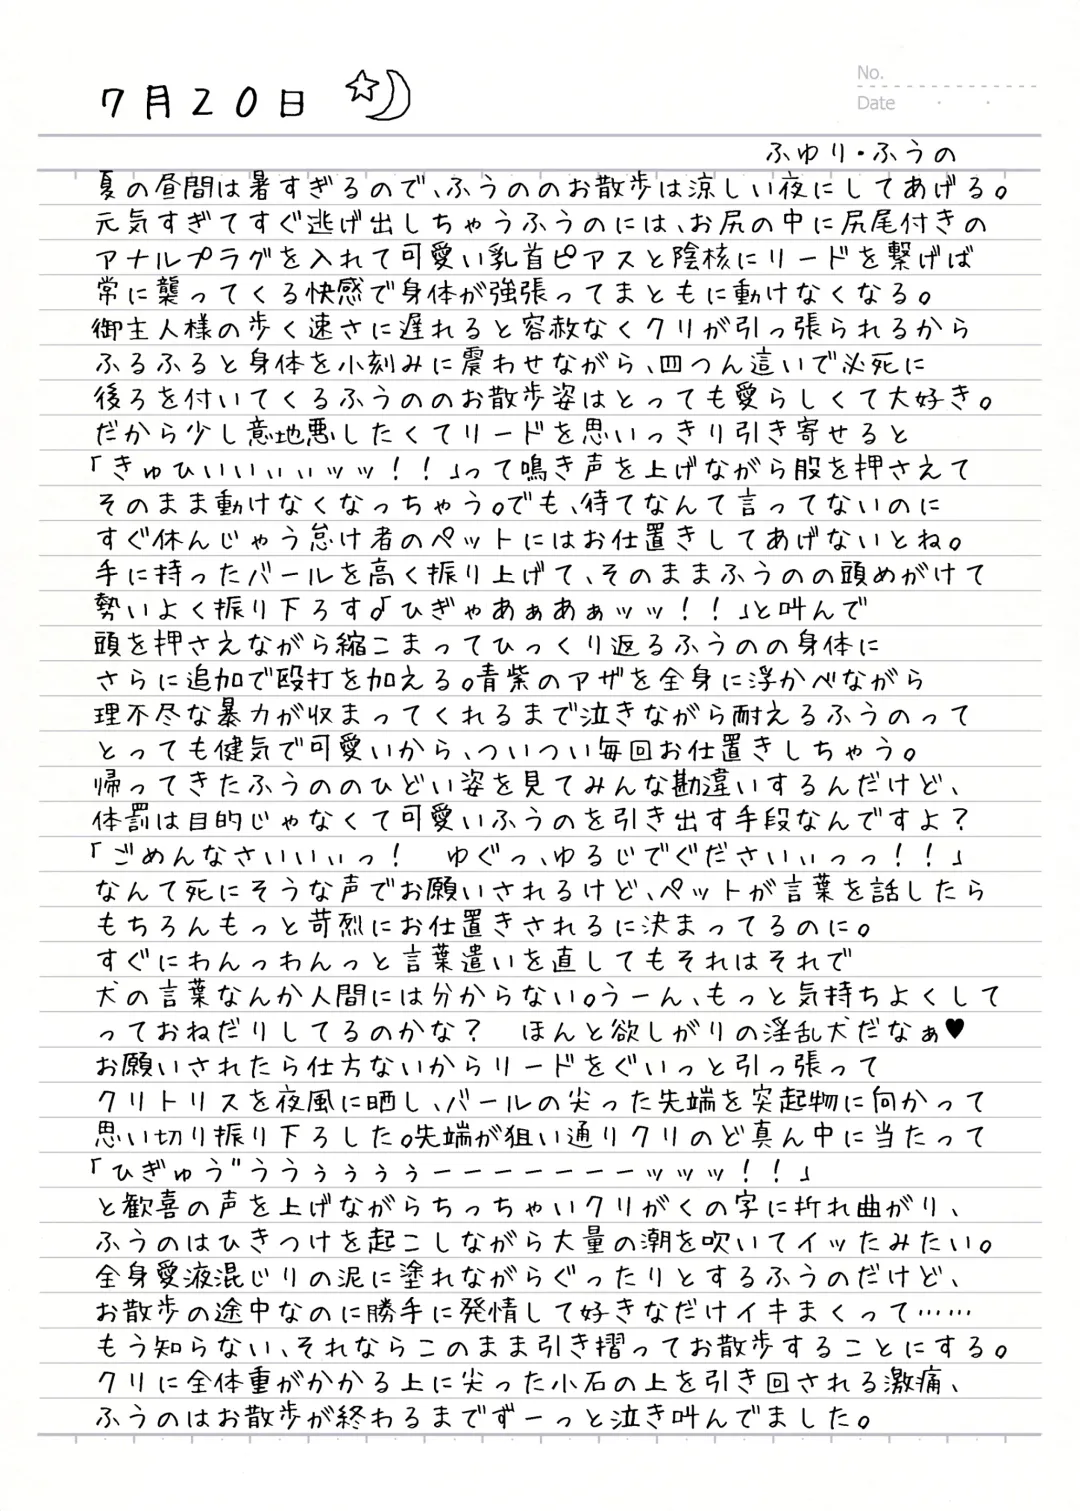 7月20日
No.
Date
ふゆり・ふうの
夏の昼間は暑すぎるので、ふうののお散歩は涼しい夜にしてあげる。
元気すぎてすぐ逃げ出しちゃうふうのには、お尻の中に尻尾付きの
アナルプラグを入れて可愛い乳首ピアスと陰核にリードを繋げば
常に襲ってくる快感で身体が強張ってまともに動けなくなる。
御主人様の歩く速さに遅れると容赦なくクリが引っ張られるから
ふるふると身体を小刻みに震わせながら、四つん這いで必死に
後ろを付いてくるふうののお散歩姿はとっても愛らしくて大好き。
だから少し意地悪したくてリードを思いっきり引き寄せると
「きゅひいいぃぃッッ！！」って鳴き声を上げながら股を押さえて
そのまま動けなくなっちゃう。でも、待てなんて言ってないのに
すぐ休んじゃう怠け者のペットにはお仕置きしてあげないとね。
手に持ったバールを高く振り上げて、そのままふうのの頭めがけて
勢いよく振り下ろす。「ひぎゃあぁあぁッッ！！」と叫んで
頭を押さえながら縮こまってひっくり返るふうのの身体に
さらに追加で殴打を加える。青紫のアザを全身に浮かべながら
理不尽な暴力が収まってくれるまで泣きながら耐えるふうのって
とっても健気で可愛いから、ついつい毎回お仕置きしちゃう。
帰ってきたふうののひどい姿を見てみんな勘違いするんだけど、
体罰は目的じゃなくて可愛いふうのを引き出す手段なんですよ？
「ごめんなさいいいぃっ！　ゆぐっ、ゆるじでぐださいぃぃっっ！！」
なんて死にそうな声でお願いされるけど、ペットが言葉を話したら
もちろんもっと苛烈にお仕置きされるに決まってるのに。
すぐにわんっわんっと言葉遣いを直してもそれはそれで
犬の言葉なんか人間には分からない。うーん、もっと気持ちよくして
っておねだりしてるのかな？　ほんと欲しがりの淫乱犬だなぁ♥
お願いされたら仕方ないからリードをぐいっと引っ張って
クリトリスを夜風に晒し、バールの尖った先端を突起物に向かって
思い切り振り下ろした。先端が狙い通りクリのど真ん中に当たって
「ひぎゅう゛ううぅぅぅぅーーーーーーーーッッッ！！」
と歓喜の声を上げながらちっちゃいクリがくの字に折れ曲がり、
ふうのはひきつけを起こしながら大量の潮を吹いてイッたみたい。
全身愛液混じりの泥に塗れながらぐったりとするふうのだけど、
お散歩の途中なのに勝手に発情して好きなだけイキまくって……
もう知らない、それならこのまま引き摺ってお散歩することにする。
クリに全体重がかかる上に尖った小石の上を引き回される激痛、
ふうのはお散歩が終わるまでずーっと泣き叫んでました。